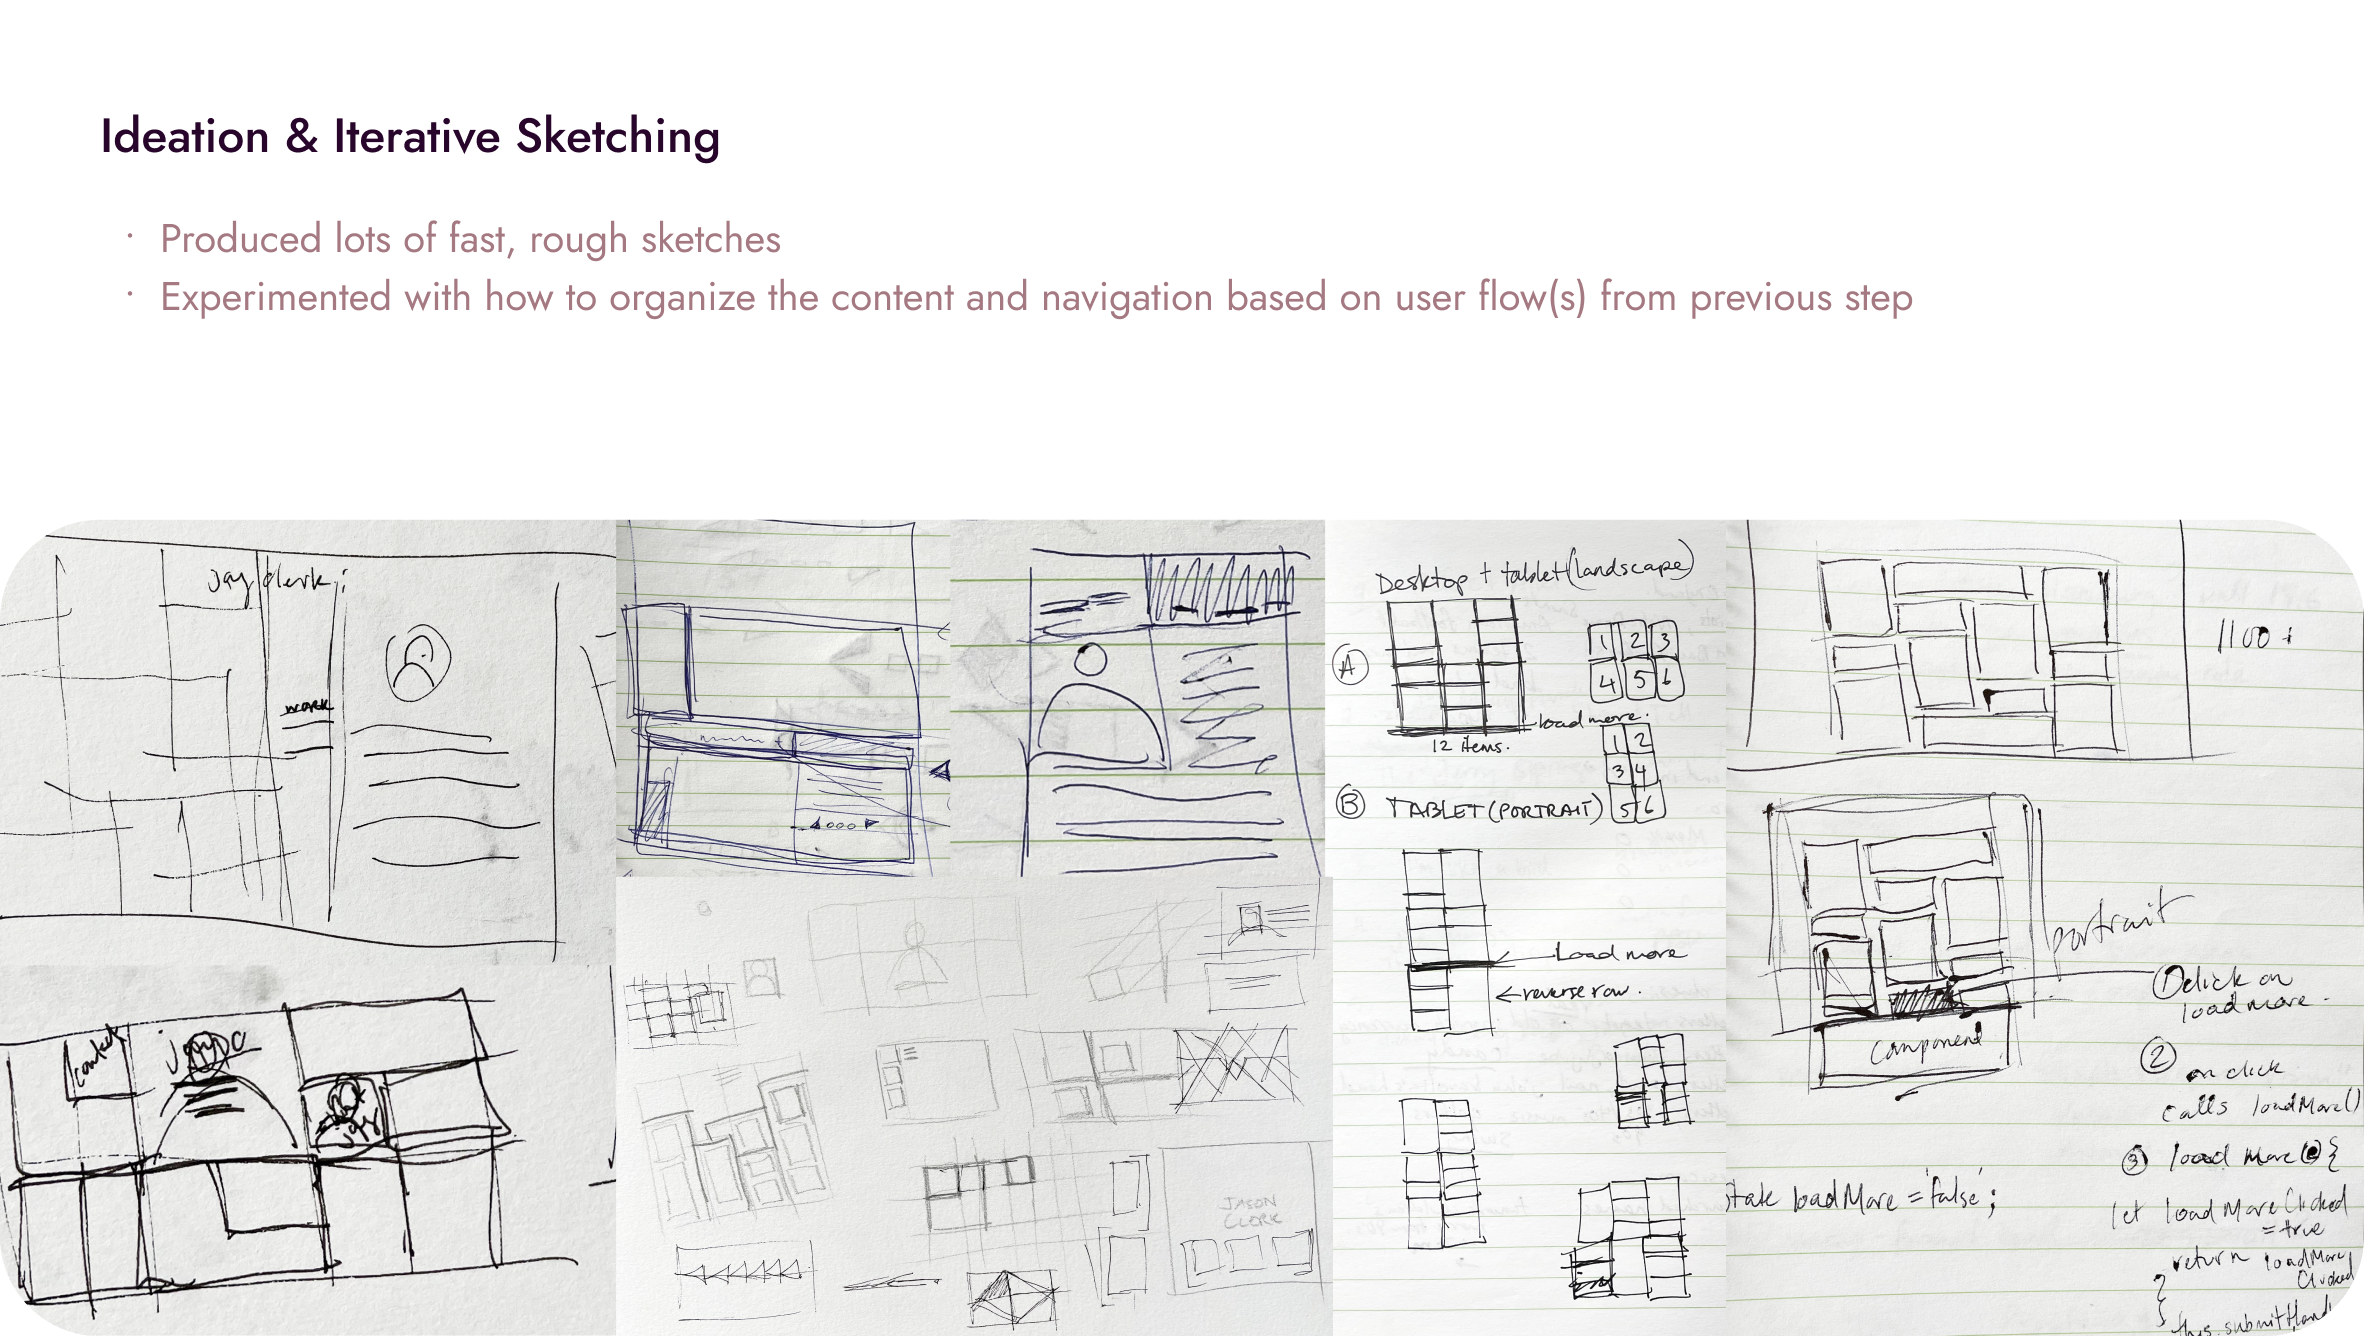 Ideation & Iterative Sketching
· Produced lots of fast, rough sketches
· Experimented with how to organize the content and navigation based on user flow(s) from previous step
Jay clerk
work
contact
JASON
CLERK
Desktop + tablet (landscape)
A
1 2 3
4 5 6
load more.
12 items.
1 2
3 4
5 6
B TABLET (PORTRAIT)
Load more
reverse row.
1100
portrait
① click on
load more.
Component
②
on click
calls loadMore()
③ load More {
state loadMore = 'false';
let loadMoreClicked
= true
return loadMore
Clicked
}
this.submitHand